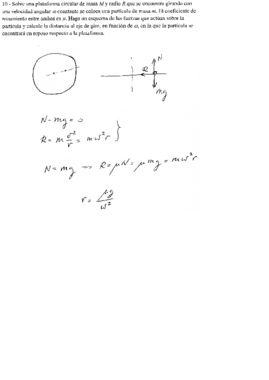 10 - Sobre una plataforma circular de masa M y radio R que se encuentra girando con
una velocidad angular ω constante se coloca una partícula de masa m. El coeficiente de
rozamiento entre ambos es μ. Haga un esquema de las fuerzas que actúan sobre la
partícula y calcule la distancia al eje de giro, en función de ω, en la que la partícula se
encontrará en reposo respecto a la plataforma.
N
R
mg
N - mg = 0
R = m v²/r = m ω² r
N = mg → R = μN = μ mg = m ω² r
r = μg/ω²